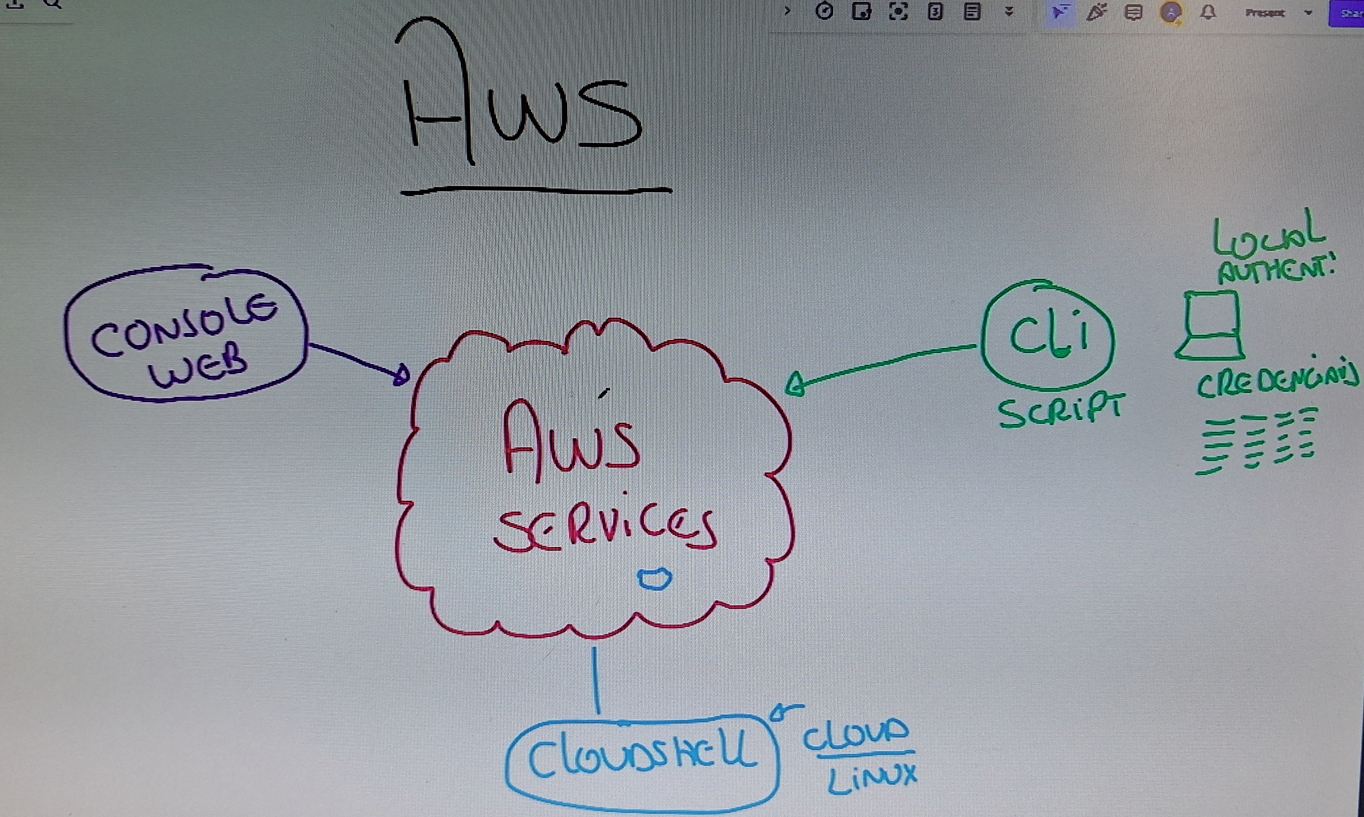 Present
Shar
AWS
CONSOLE
WEB
AWS
SERVICES
CLi
SCRiPT
LOCAL
AUTHENT!
CREDENCIAIS
CLOUDSHELL
CLOUD
LiNUX